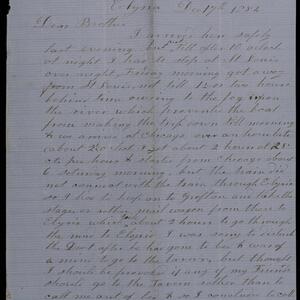 Elyria Dec 17th 1882
Dear Brother
I arrived here safely
last evening, but not till after 10 oclock
at night I had to stop at St Louis
over night, Friday morning got away
from St Louis, not till 1½ or two hours
behind time owing to the fog upon
the river, which prevented the boat
from making the trip down till morning
& we arrived at Chicago over an hour late
about
cts per hour & started from Chicago about
6 saturday morning, but the train did
not connect with the train through Elyria
so I had to keep on to Grafton and take the
stage or rather mail wagon from there to
Elyria which about 2 hours to go through
the mud to Elyria I was sorry to disturb
the Doct after he had gone to bed & was of
a mind to go to the tavern, but thought
I should be provoked if any of my Friends
should go to the Tavern rather than to
call me out of bed & so I conclude to call